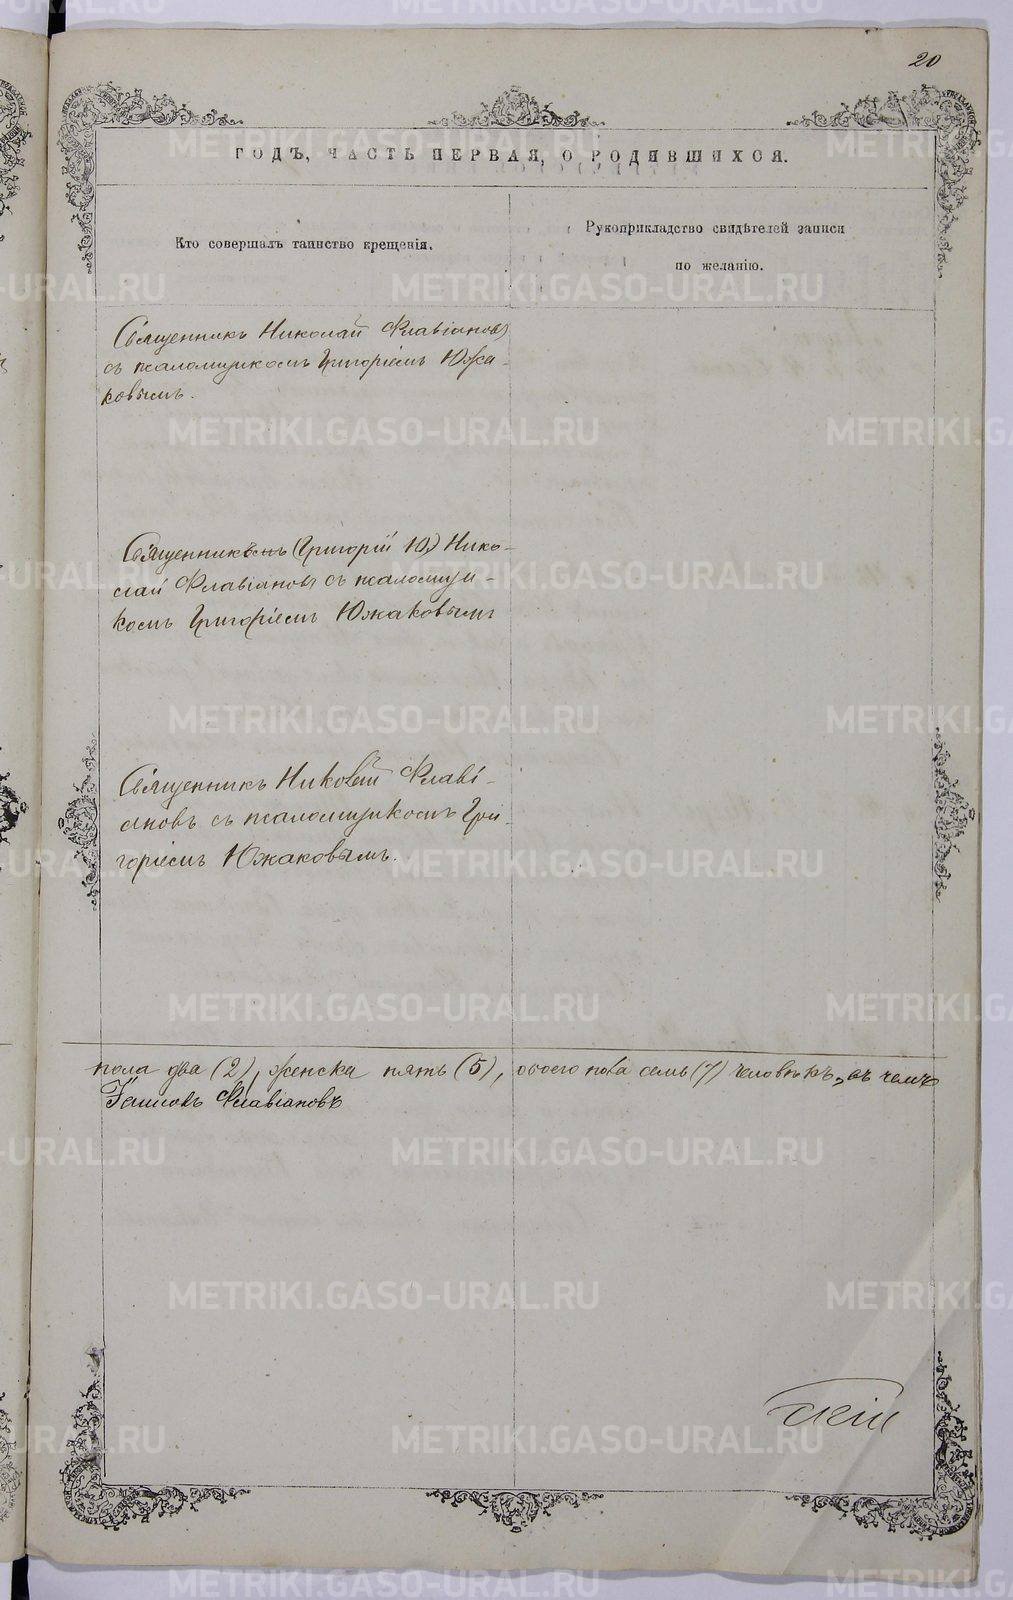 20
ГОДЪ, ЧАСТЬ ПЕРВАЯ, О РОДИВШИХСЯ.
Кто совершалъ таинство крещенія.
Рукоприкладство свидѣтелей записи
по желанію.
Священникъ Николай Флавіановъ
съ псаломщикомъ Григоріемъ Южа-
ковымъ.
Священникъ (Григорій Ю.) Нико-
лай Флавіановъ съ псаломщи-
комъ Григоріемъ Южаковымъ
Священникъ Николай Флаві-
ановъ съ псаломщикомъ Гри-
горіемъ Южаковымъ.
пола два (2), женска пять (5), обоего пола семь (7) человѣкъ, въ чемъ
Флавіановъ
METRIKI.GASO-URAL.RU